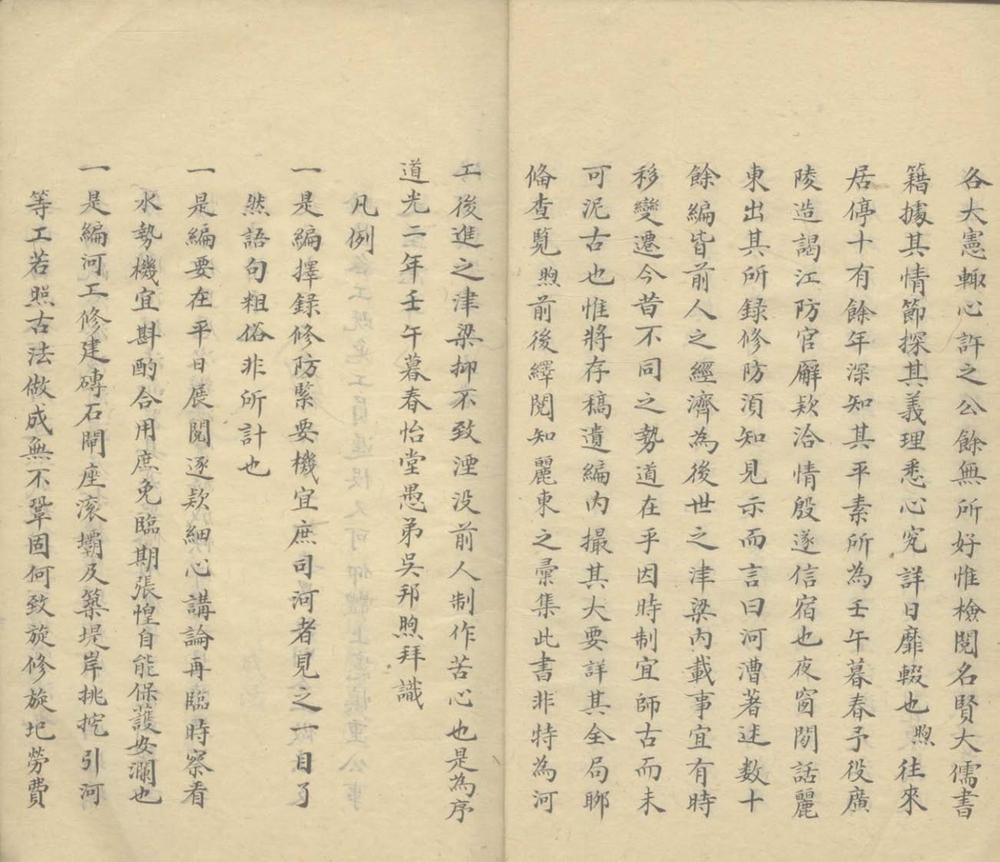 各大憲輙心許之公餘無所好惟檢閱名賢大儒書
籍據其情節探其義理悉心究詳日靡輟也煦往來
居停十有餘年深知其平素所為壬午暮春予役廣
陵造謁江防官廨欵洽情殷遂信宿也夜窗閒話麗
東出其所録修防湏知見示而言曰河漕著述数十
餘編皆前人之經濟為後世之津梁内載事宜有時
移變遷今昔不同之勢道在乎因時制宜師古而未
可泥古也惟將存稿遺編内撮其大要詳其全局聊
俻查覧煦前後繹閱知麗東之彙集此書非特為河
工後進之津梁抑不致湮没前人制作苦心也是為序
道光二年壬午暮春怡堂愚弟吳邦煦拜識
凡例
一是編擇録修防緊要機宜庶司河者見之一目了
然語句粗俗非所計也
一是編要在平日展閱逐欵細心講論再臨時察看
水勢機宜斟酌合用庶免臨期張惶自能保護安瀾也
一是編河工修建磚石閘座滚壩及築堤岸挑挖引河
等工若照古法做成無不鞏固何致旋修旋圮勞費